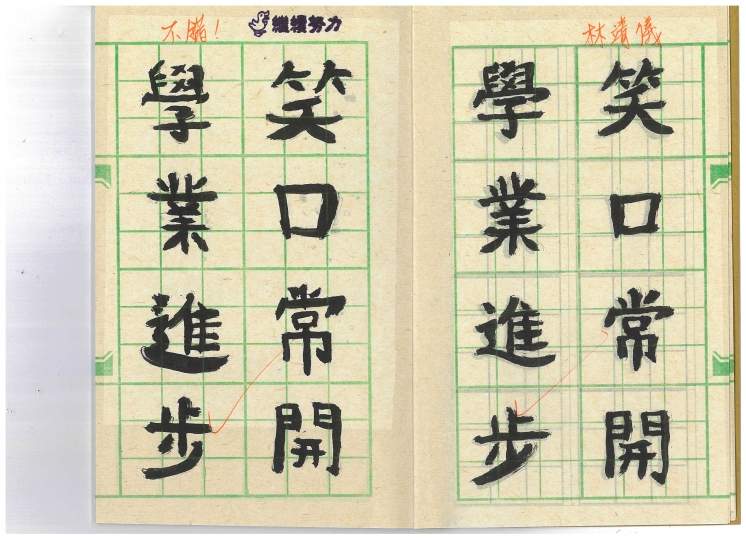 林靖儀
笑口常開
學業進步
不錯!
繼續努力
笑口常開
學業進步